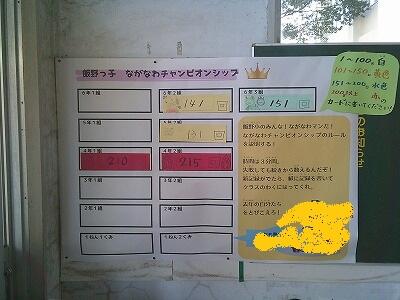 飯野っ子 ながなわチャンピオンシップ
6年1組
6年2組
141 回
6年3組
151 回
5年1組
5年2組
131 回
4年1組
210
4年2組
215 回
3年1組
3年2組
2年1組
2年2組
1ねん1くみ
1ねん2くみ
飯野小のみんな!ながなわマンだ!
ながなわチャンピオンシップのルール
を説明する!
時間は3分間。
失敗しても続きから数えるんだぞ!
新記録がでたら、紙に記録を書いて
クラスのわくにはってくれ。
去年の自分たち
をとびこえろ!
1~100。白
101~150。黄色
151~200。水色
200以上 赤の
カードに書いてください!
のお知らせ